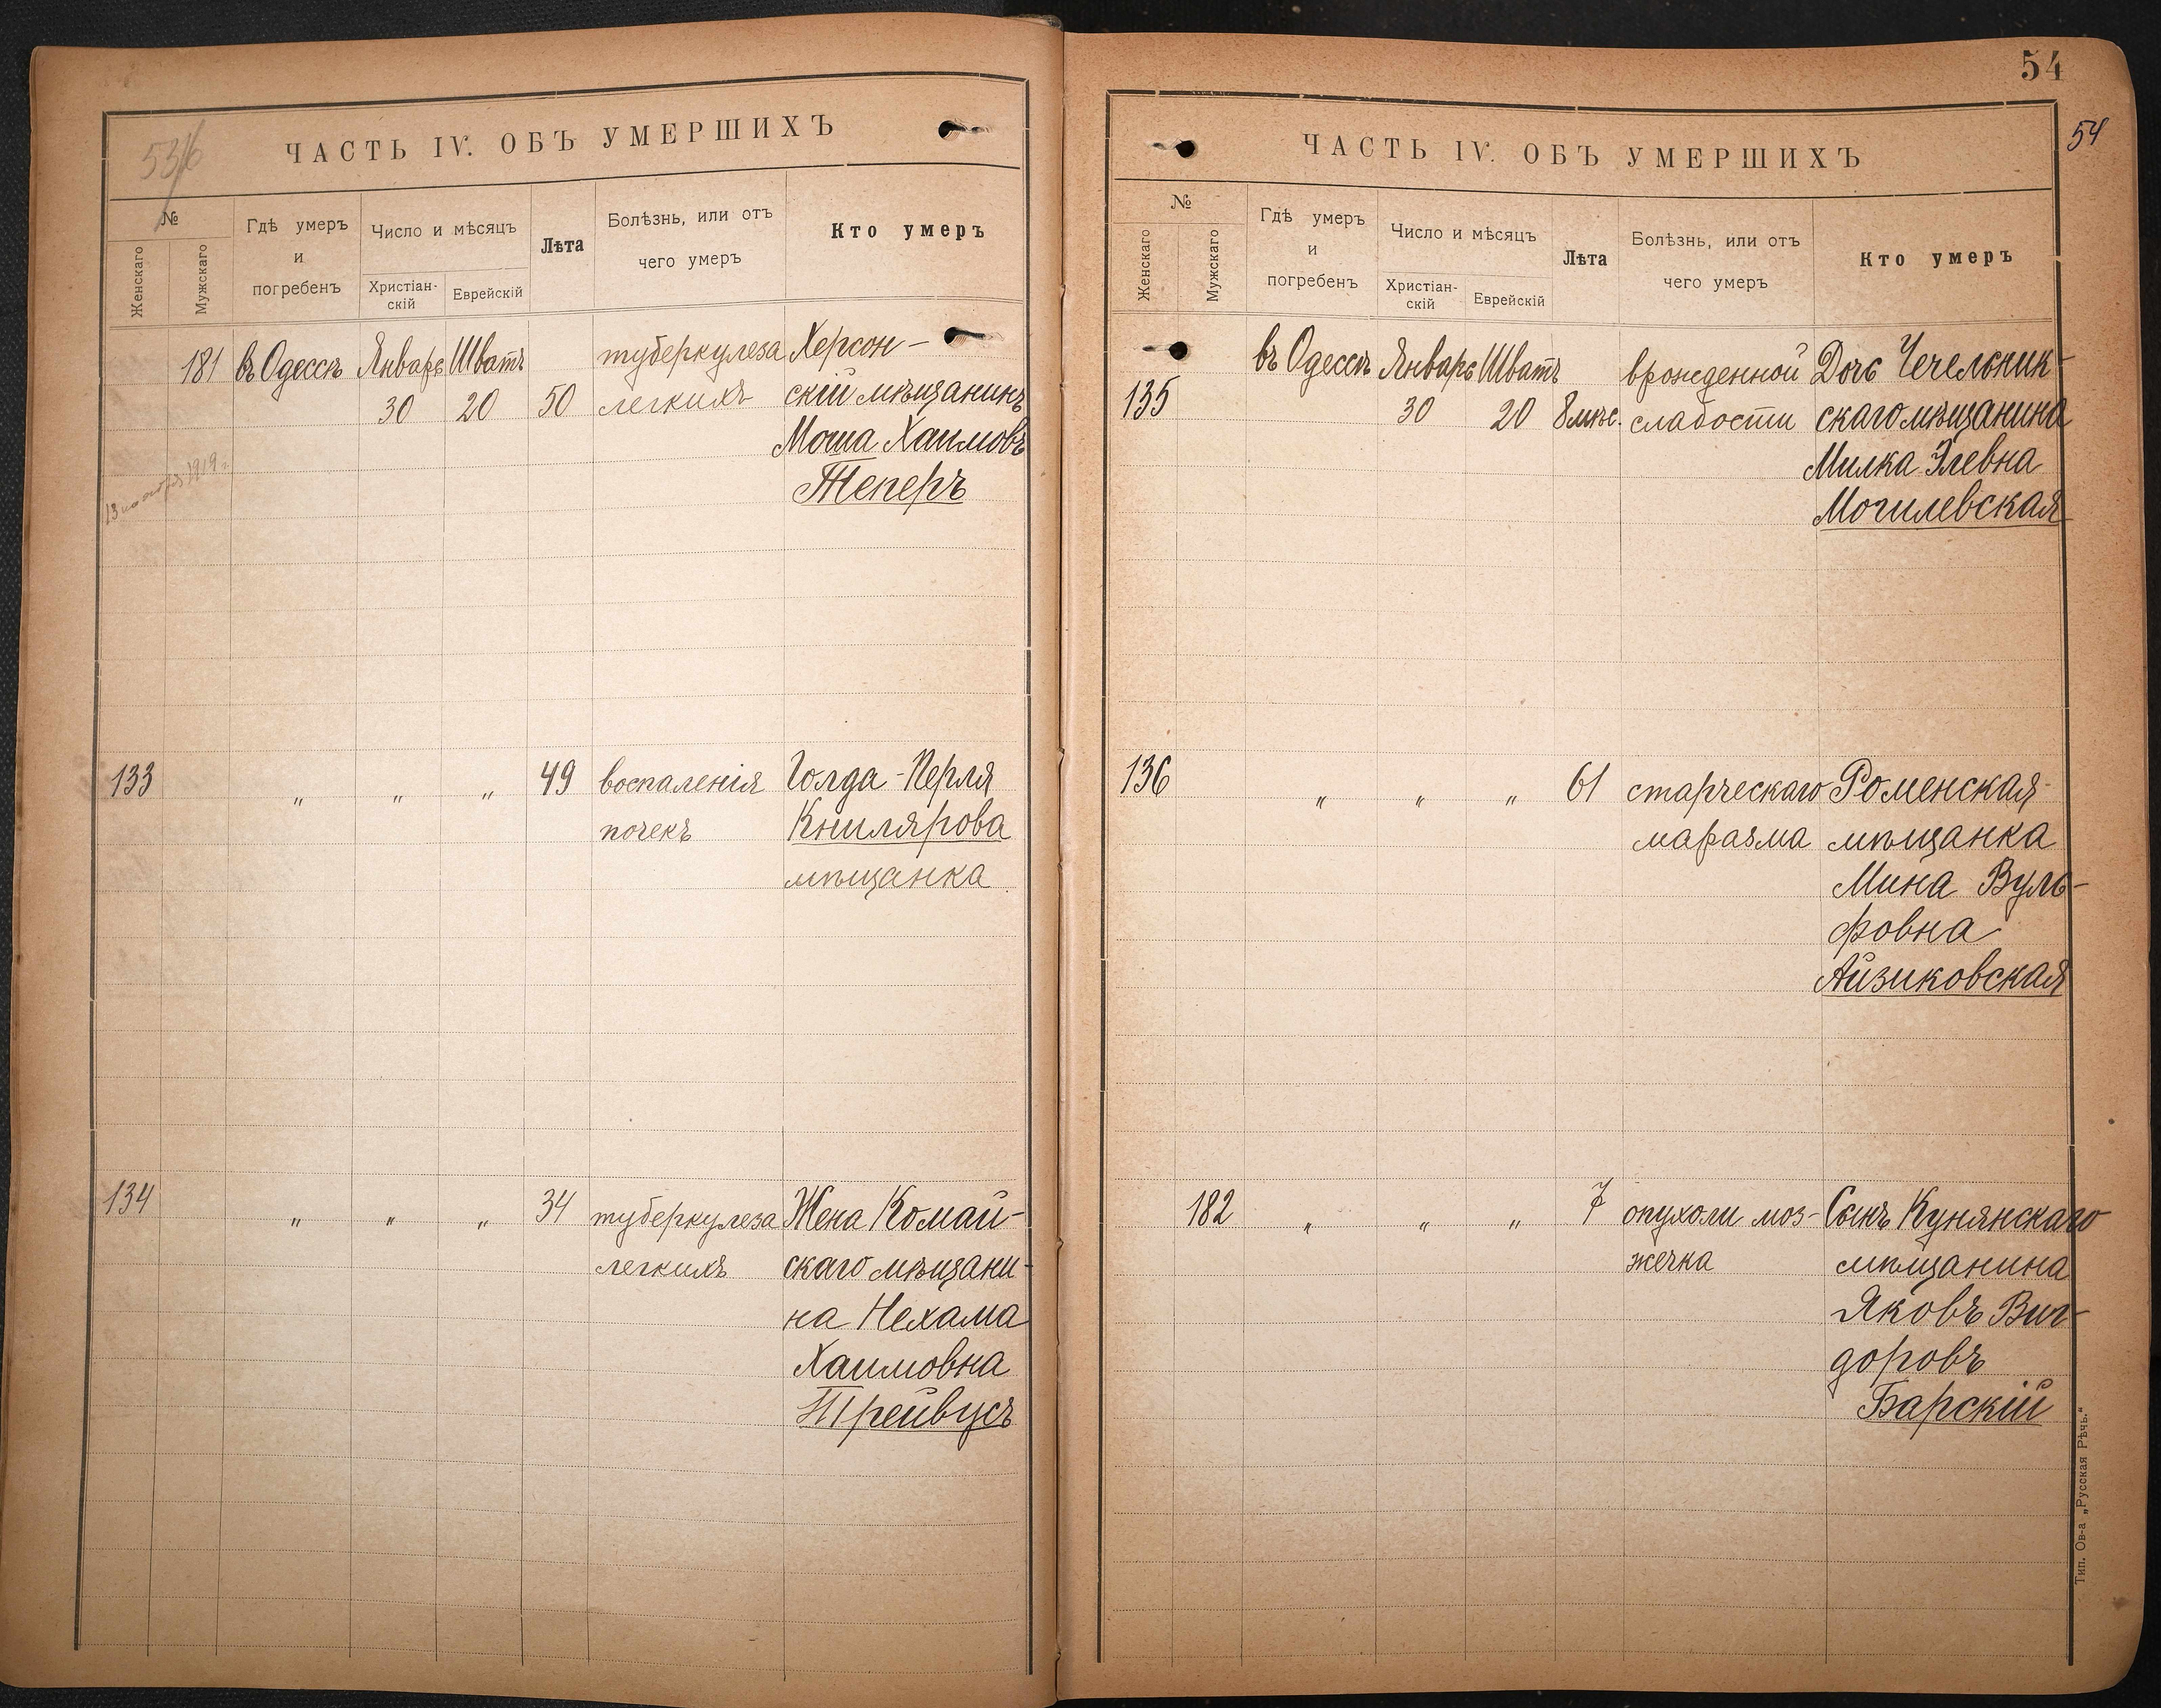 ЧАСТЬ IV. ОБЪ УМЕРШИХЪ
№
Женскаго
Мужскаго
Гдѣ умеръ
и
погребенъ
Число и мѣсяцъ
Христіан-
скій
Еврейскій
Лѣта
Болѣзнь, или отъ
чего умеръ
Кто умеръ
181 въ Одессѣ Январь Шватъ туберкулеза Херсон-
30 20 50 легкихъ скій мѣщанинъ
Моша Хаимовъ
Теперъ
133 " " " 49 воспаленія Голда-Перля
почекъ Книлярова
мѣщанка
134 " " " 34 туберкулеза Жена Комай-
легкихъ скаго мѣщани-
на Нехама
Хаимовна
Трейвусъ
54
54
ЧАСТЬ IV. ОБЪ УМЕРШИХЪ
№
Женскаго
Мужскаго
Гдѣ умеръ
и
погребенъ
Число и мѣсяцъ
Христіан-
скій
Еврейскій
Лѣта
Болѣзнь, или отъ
чего умеръ
Кто умеръ
въ Одессѣ Январь Шватъ врожденной Дочь Чечельник-
135 30 20 8 мѣс. слабости скаго мѣщанина
Милка Элевна
Могилевская
136 " " " 61 старческаго Роменская
маразма мѣщанка
Мина Вуль-
фовна
Айзиковская
182 " " " 7 опухоли моз- Сынъ Кунянскаго
жечка мѣщанина
Яковъ Виг-
доровъ
Барскій
Тип. Ов-а „Русская Рѣчь.“